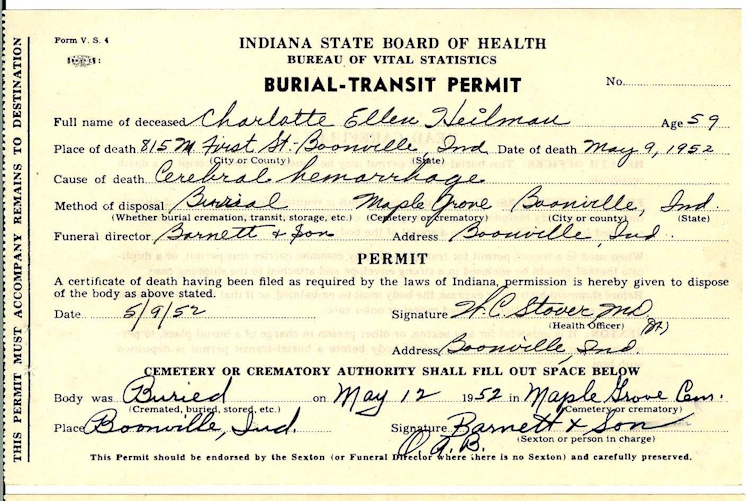 Form V. S. 4
INDIANA STATE BOARD OF HEALTH
BUREAU OF VITAL STATISTICS
BURIAL-TRANSIT PERMIT
No.
Full name of deceased Charlotte Ellen Heilman Age 59
Place of death 815 First St. Boonville, Ind Date of death May 9, 1952
(City or County) (State)
Cause of death Cerebral hemorrhage
Method of disposal Burial Maple Grove Boonville, Ind.
(Whether burial cremation, transit, storage, etc.) (Cemetery or crematory) (City or county) (State)
Funeral director Barnett & Son Address Boonville, Ind.
PERMIT
A certificate of death having been filed as required by the laws of Indiana, permission is hereby given to dispose
of the body as above stated.
Date 5/9/52 Signature W. C. Stover MD.
(Health Officer)
Address Boonville, Ind.
CEMETERY OR CREMATORY AUTHORITY SHALL FILL OUT SPACE BELOW
Body was Buried on May 12 1952 in Maple Grove Cem.
(Cremated, buried, stored, etc.) (Cemetery or crematory)
Place Boonville, Ind. Signature Barnett & Son
(Sexton or person in charge)
This Permit should be endorsed by the Sexton (or Funeral Director where there is no Sexton) and carefully preserved.
THIS PERMIT MUST ACCOMPANY REMAINS TO DESTINATION